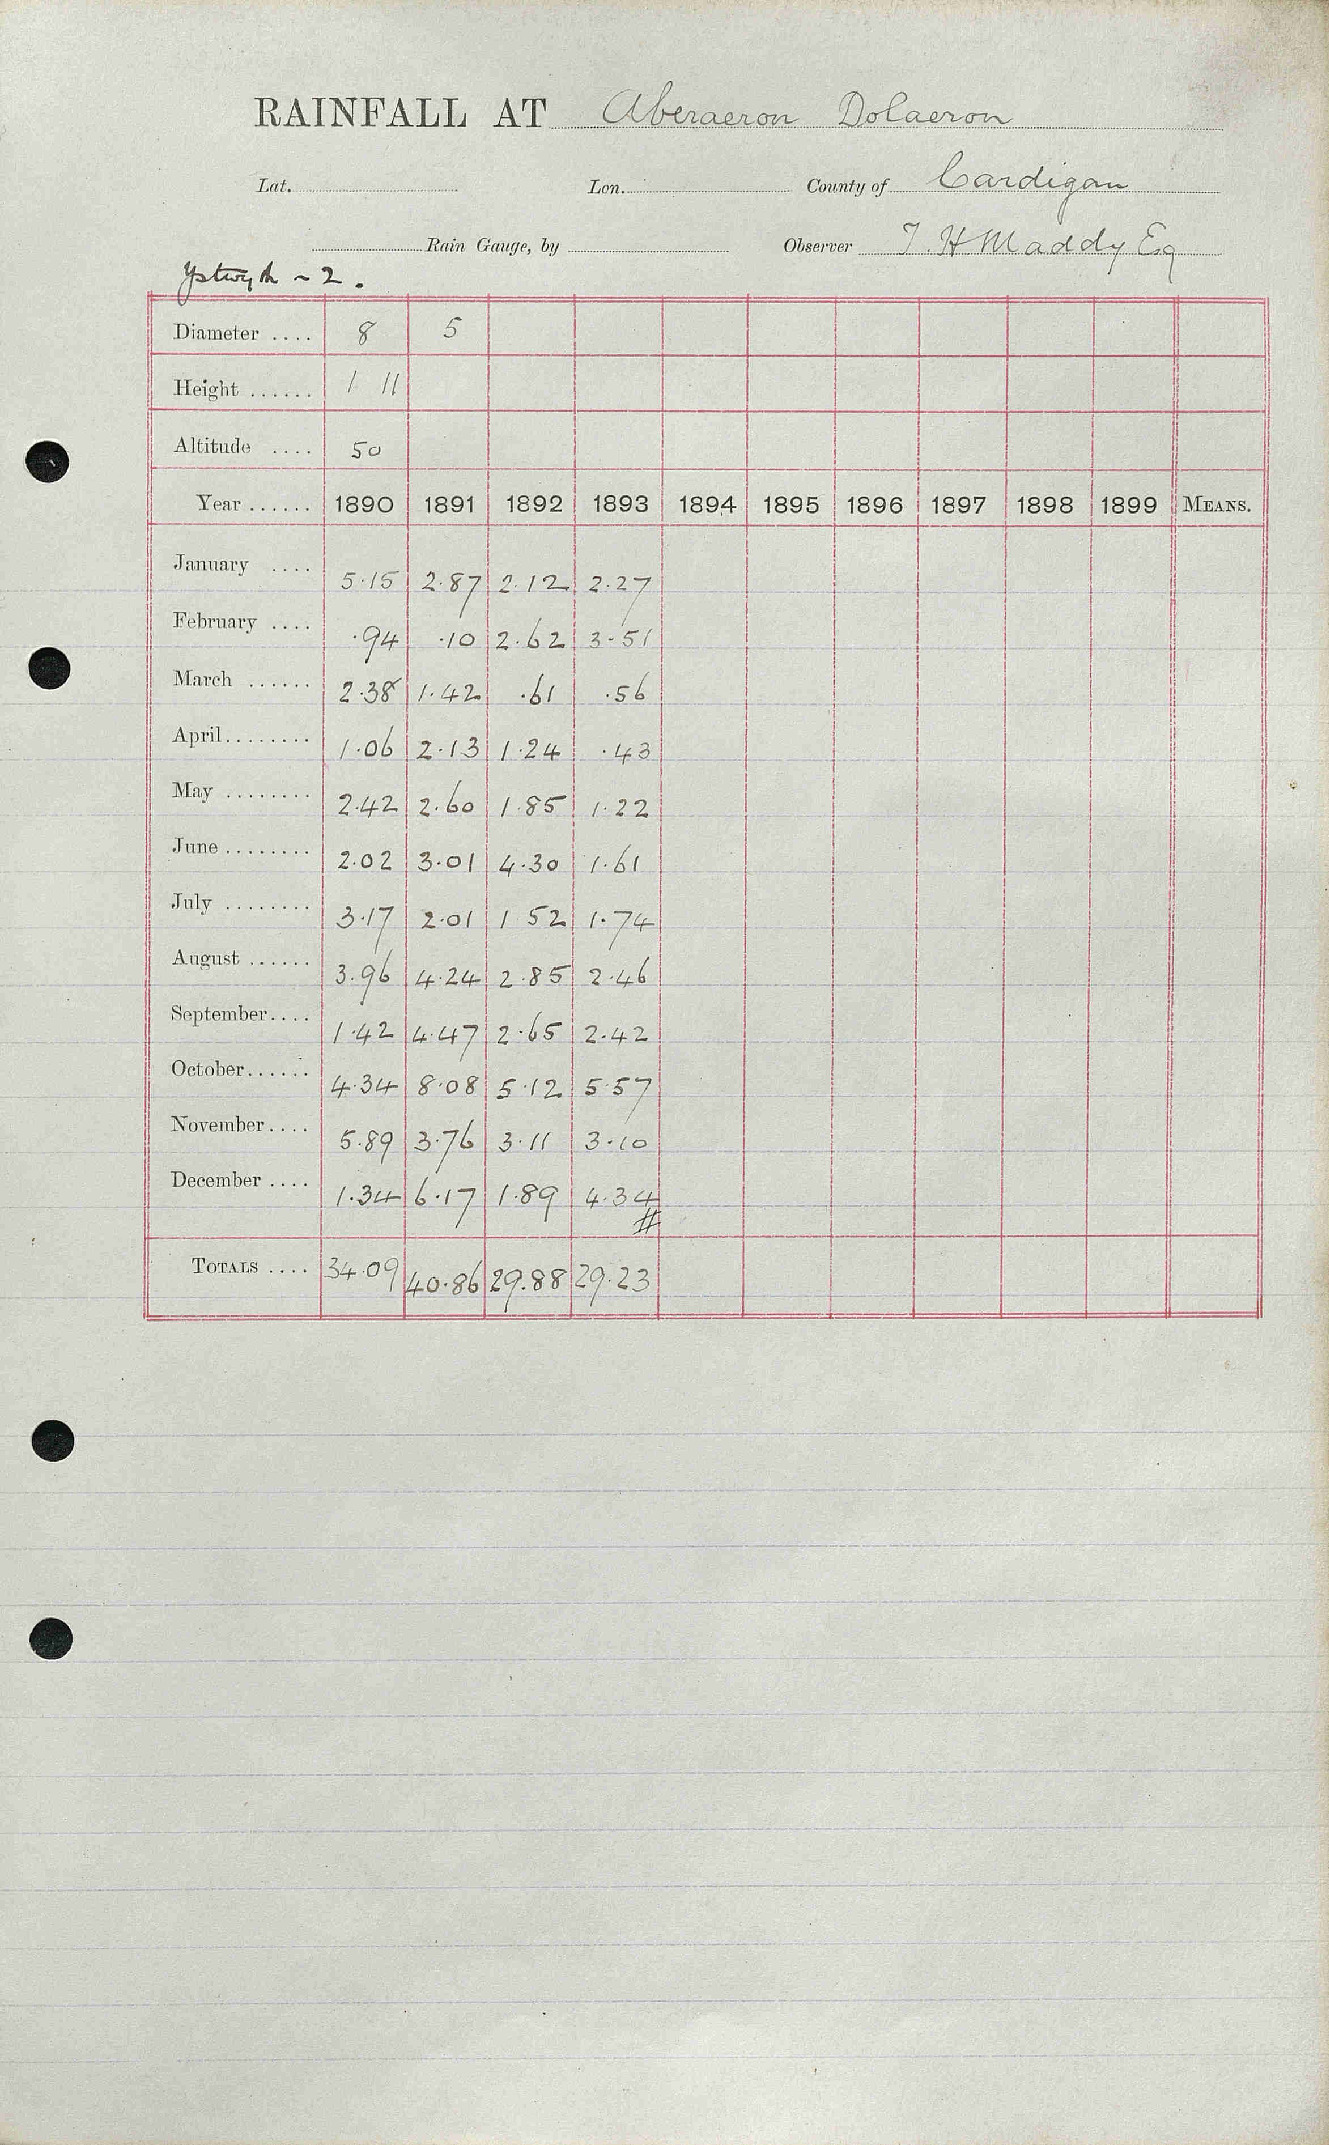 RAINFALL AT Aberaeron Dolaeron
Lat. Lon. County of Cardigan
Rain Gauge, by Observer T. H Maddy Esq
Ystwyth ~ 2.
Diameter .... 8 5
Height ...... 1 11
Altitude .... 50
Year ...... 1890 1891 1892 1893 1894 1895 1896 1897 1898 1899 MEANS.
January .... 5.15 2.87 2.12 2.27
February .... .94 .10 2.62 3.51
March ...... 2.38 1.42 .61 .56
April........ 1.06 2.13 1.24 .43
May ........ 2.42 2.60 1.85 1.22
June ........ 2.02 3.01 4.30 1.61
July ........ 3.17 2.01 1 52 1.74
August ...... 3.96 4.24 2.85 2.46
September.... 1.42 4.47 2.65 2.42
October...... 4.34 8.08 5.12 5.57
November.... 5.89 3.76 3.11 3.10
December .... 1.34 6.17 1.89 4.34
#
TOTALS .... 34.09 40.86 29.88 29.23